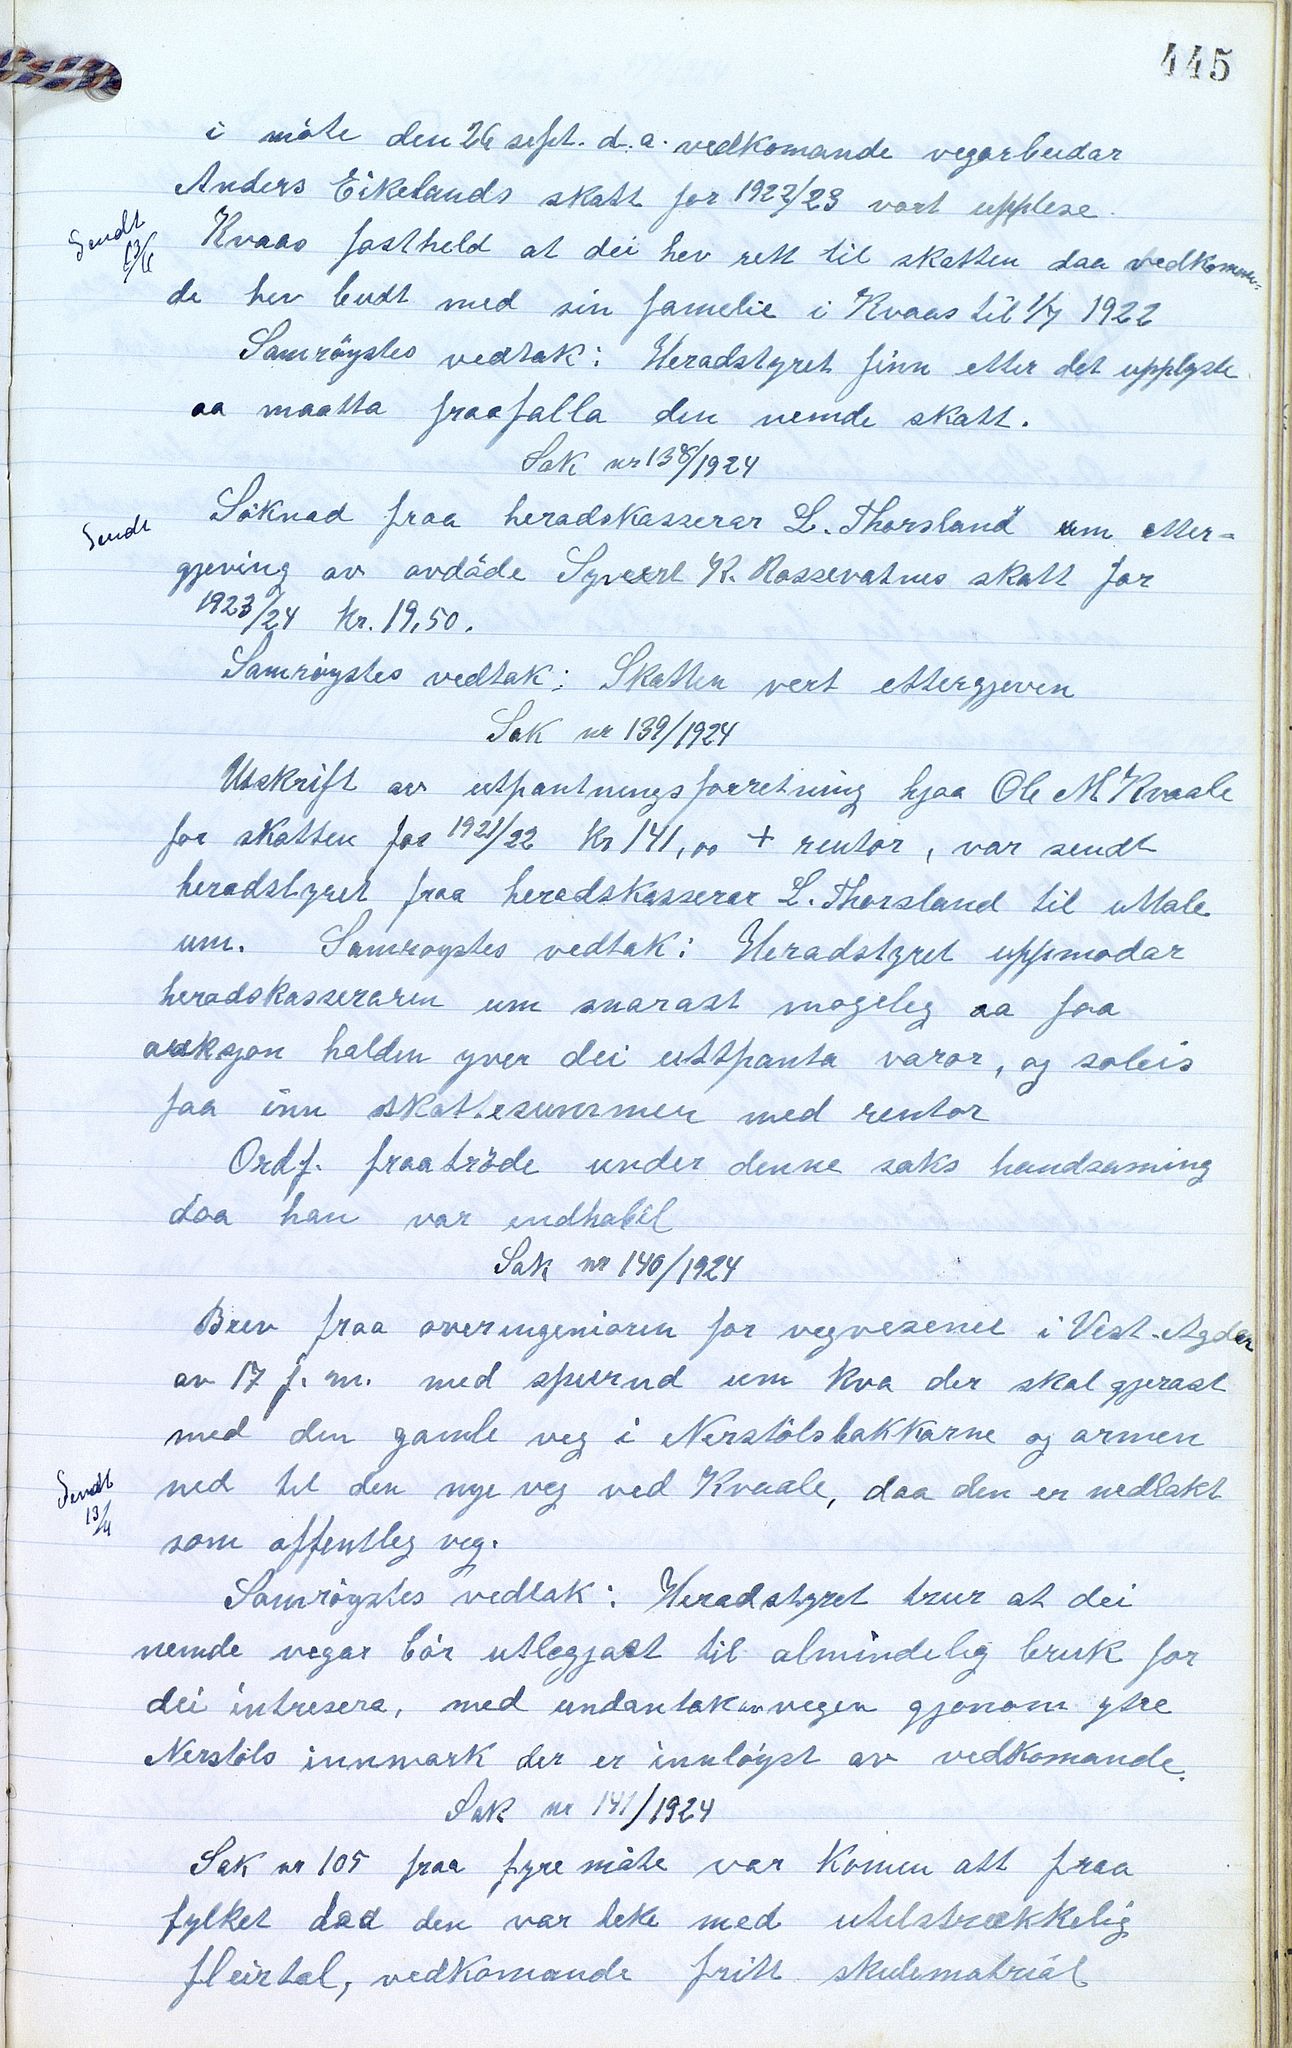 445
i möte den 26 sept. d.a. vedkomande vegarbeidar
Anders Eikelands skatt for 1922/23 vart upplese.
Sendt
13/11
Kvaas fastheld at dei hev rett til skatten daa vedkomen-
de hev budt med sin familie i Kvaas til 1/7 1922
Samröystes vedtak: Heradstyret finn etter det upplyste
aa maatta fraafalla den nemde skatt.
Sak nr 138/1924
Sendt
Söknad fraa heradskasserar L. Thorsland um etter-
gjeving av avdöde Syvert K. Rossevatnes skatt for
1923/24 kr. 19,50.
Samröystes vedtak: Skatten vert ettergjeven
Sak nr 139/1924
Utskrift av utpantningsforretning hjaa Ole M Kvaale
for skatten for 1921/22 Kr 141,00 + rentor, var sendt
heradstyret fraa heradskasserar L. Thorsland til uttale
um. Samröystes vedtak: Heradstyret uppmodar
heradskasseraren um snarast mogeleg aa faa
auksjon halden yver dei uttpanta varor, og soleis
faa inn skattesummen med rentor
Ordf. fraatröde under denne saks handsaming
daa han var indhabil
Sak nr 140/1924
Brev fraa overingeniören for vegvesenet i Vest-Agder
av 17 f.m. med spursnd um kva der skal gjerast
med den gamle veg i Nerstölsbakkarne og armen
Sendt
13/11
ned til den nye veg ved Kvaale, daa den er nedlakt
som offentleg veg.
Samröystes vedtak: Heradstyret trur at dei
nemde vegar bör utleggjast til almindelig bruk for
dei intresera, med undantak av vegen gjenom ytre
Nerstöls innmark der er innlöyst av vedkomande.
Sak nr 141/1924
Sak nr 105 fraa fyre möte var komen att fraa
fylket daa den var teke med utilstrækkelig
fleirtal, vedkomande fritt skulematriäl